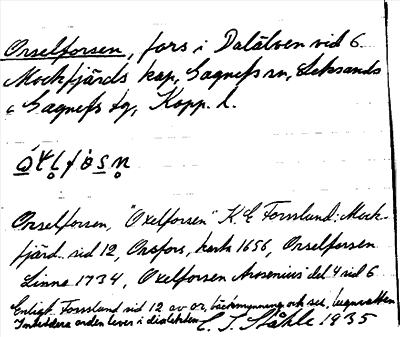 Orselforsen, fors i Dalälven vid G.
Mockfjärds kap, Gagnefs sn, Leksands
o Gagnefs tg, Kopp. l.
Orselforsen, "Oxelforsen" K. E. Forsslund: Mock-
fjärd sid 12, Orsfors, karta 1656, Orselforsen
Linne 1734, Oxelforsen Arosenius del 4 sid 6
Enligt Forsslund sid 12 av or, bäckmynning och sel, lugnvatten
orden lever i dialekten C. I. Ståhle 1935